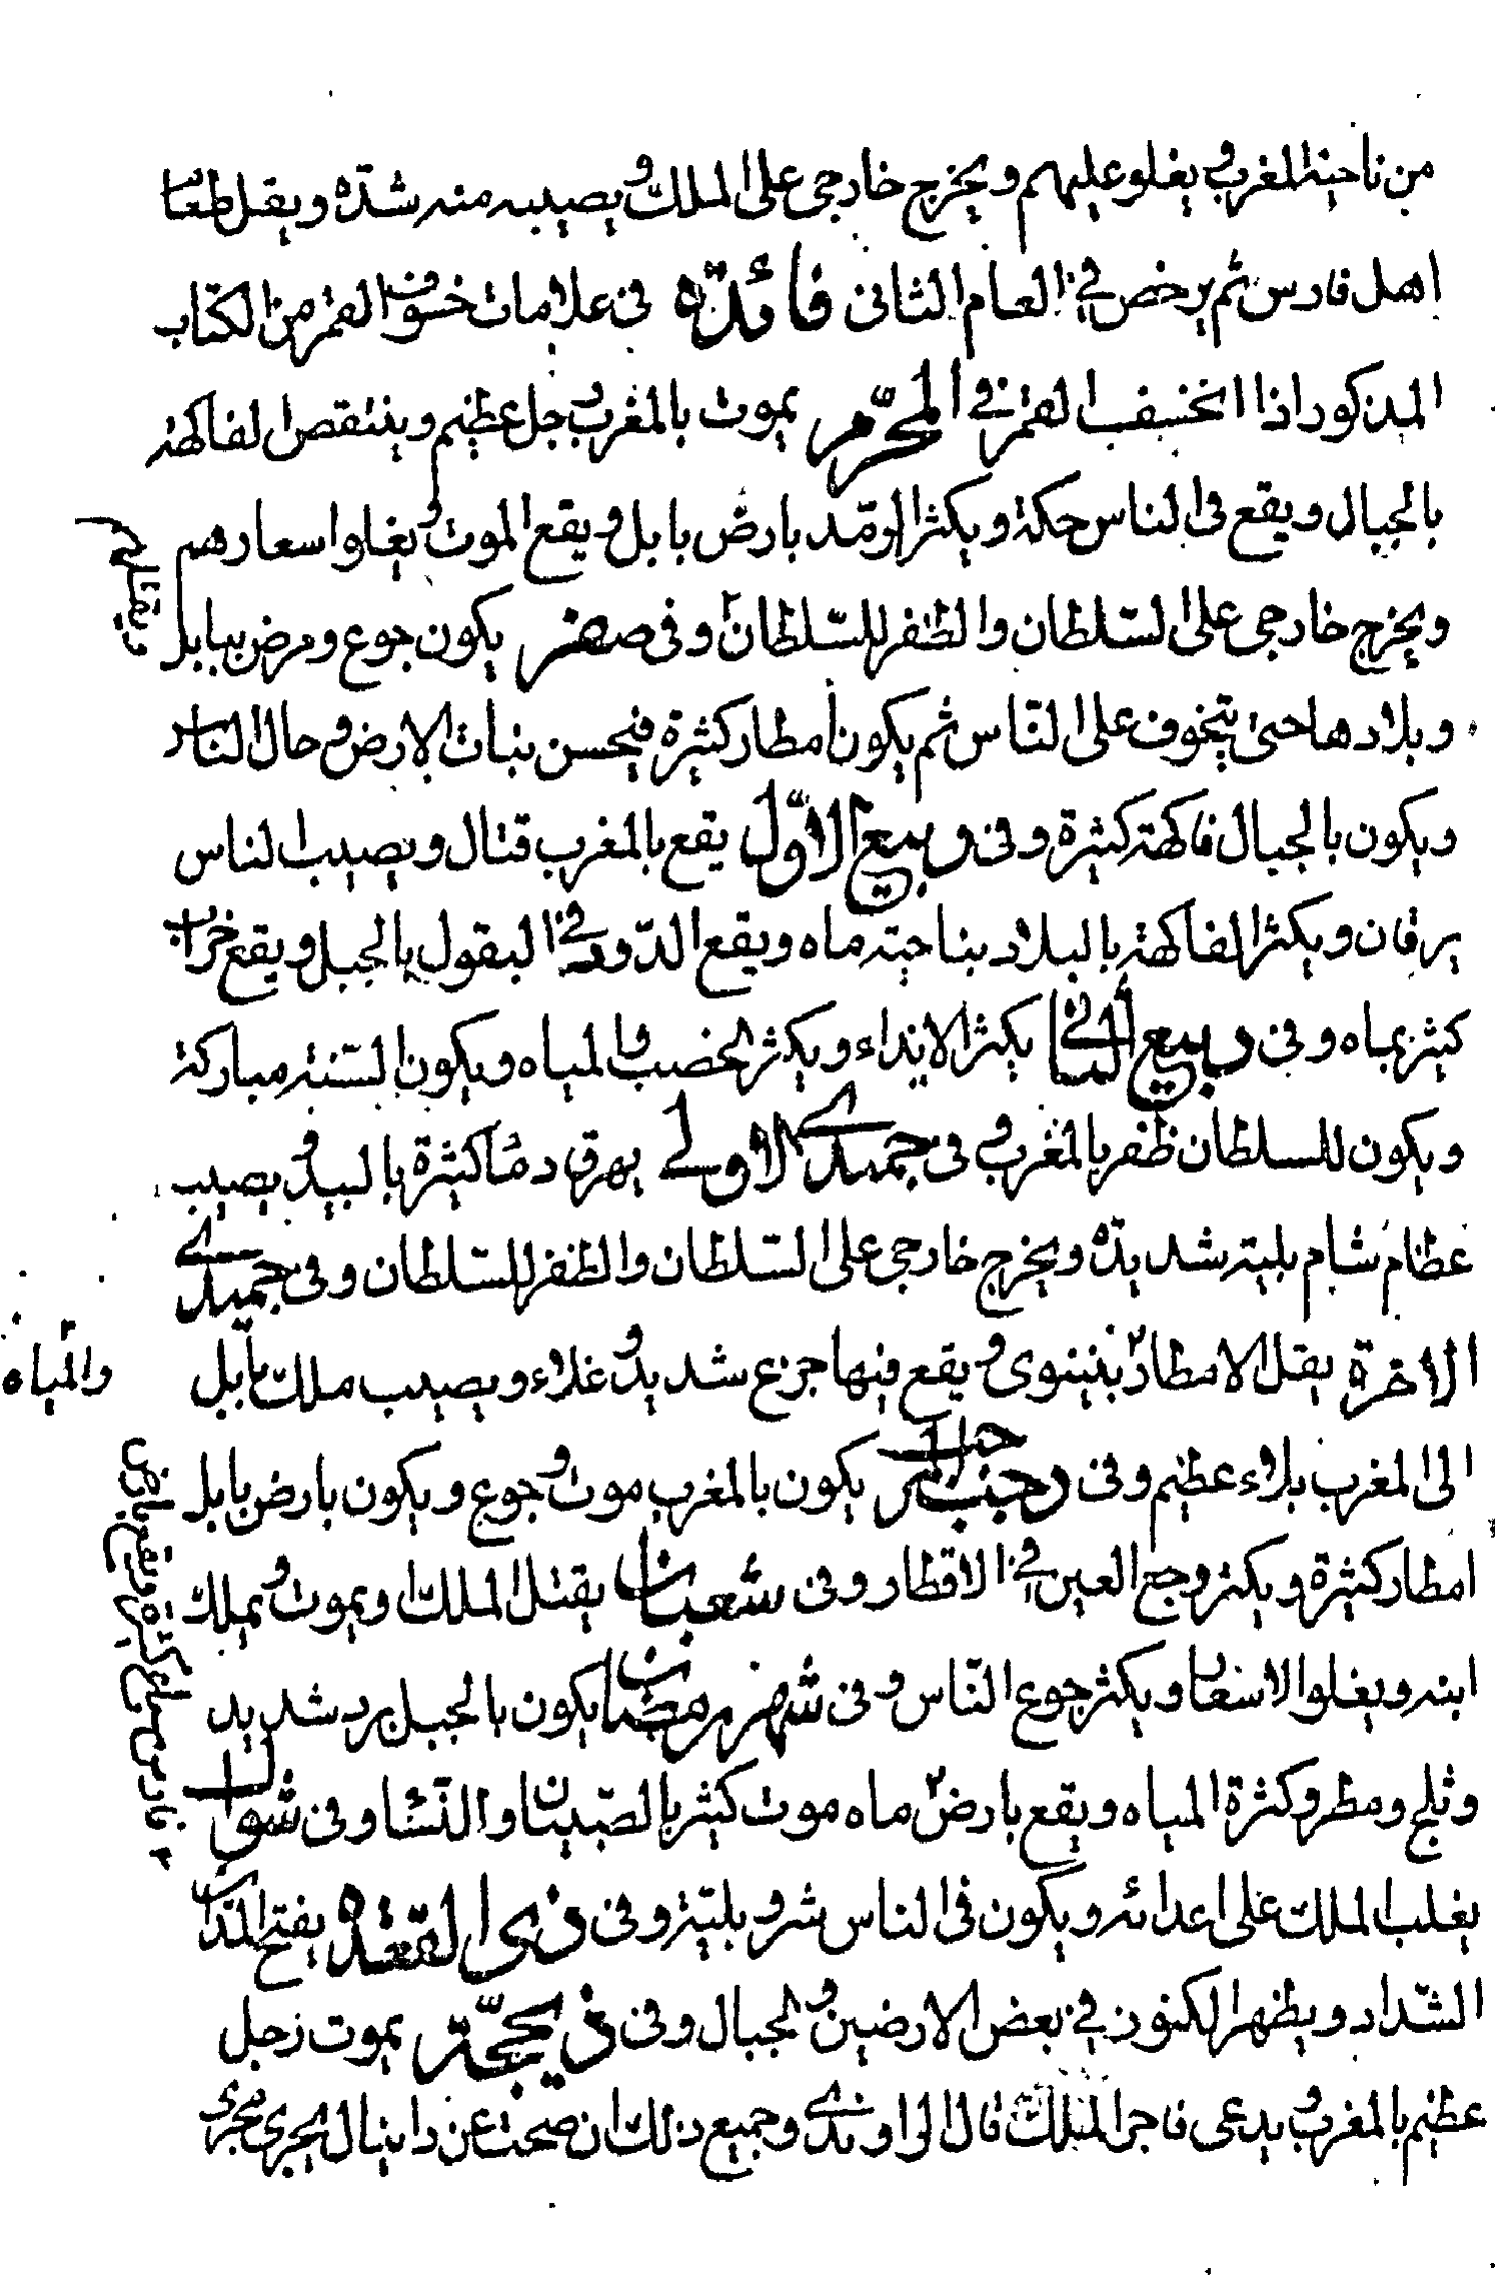 من ناحية المغرب و يغلو عليهم و يخرج خارجي على الملك و يصيبه منه شدّة و يقل طعام
اهل فارس ثم يرخص في العام الثاني فائدة في علامات خسوف القمر من الكتاب
المذكور اذا انخسف القمر في المحرّم يموت بالمغرب رجل عظيم و ينتقص الفاكهة
بالجبال و يقع في الناس حكة و يكثر الرمد بارض بابل و يقع الموت و يغلوا اسعارهم
و يخرج خارجي على السلطان و الظفر للسّلطان و في صفر يكون جوع و مرض ببابل
و بلادها حتى يتخوف على النّاس ثم يكون امطار كثيرة فيحسن نبات الارض و حال الناس
و يكون بالجبال فاكهة كثيرة و في ربيع الاوّل يقع بالمغرب قتال و يصيب الناس
يرقان و يكثر الفاكهة بالبلاد بناحية ماه و يقع الدّود في البقول بالجبل و يقع خراب
كثير بماه و في ربيع الثاني يكثر الانداء و يكثر الخصب و المياه و يكون السّنة مباركة
و يكون للسلطان ظفر بالمغرب و في جميدى الاولى يهرق دمًا كثيرة بالبيد و يصيب
عظام شام بلية شديدة و يخرج خارجي على السّلطان و الظفر للسّلطان و في جميدى
الاخرة يقل الامطار بنينوى و يقع فيها جزع شديد و غلاء و يصيب ملك بابل
و المياه
الى المغرب بلاء عظيم و في رجب يكون بالمغرب موت و جوع و يكون بارض بابل
امطار كثيرة و يكثر وجع العين في الاقطار و في شعبان يقتل الملك او يموت و يملك
ابنه و يغلوا الاسعار و يكثر جوع النّاس و في شهر رمضان يكون بالجبل برد شديد
و ثلج و مطر و كثرة المياه و يقع بارض ماه موت كثير بالصّبيان و النّساء و في شوال
يغلب الملك على اعدائه و يكون في الناس شر و بلية و في ذي القعدة يفتح المدائن
الشّداد و يظهر الكنوز في بعض الارضين و الجبال و في ذي الحجّة يموت رجل
عظيم بالمغرب و يدعى فاجر الملك قال الراوندي و جميع ذلك ان صحت عن دانيال يجرى مجرى